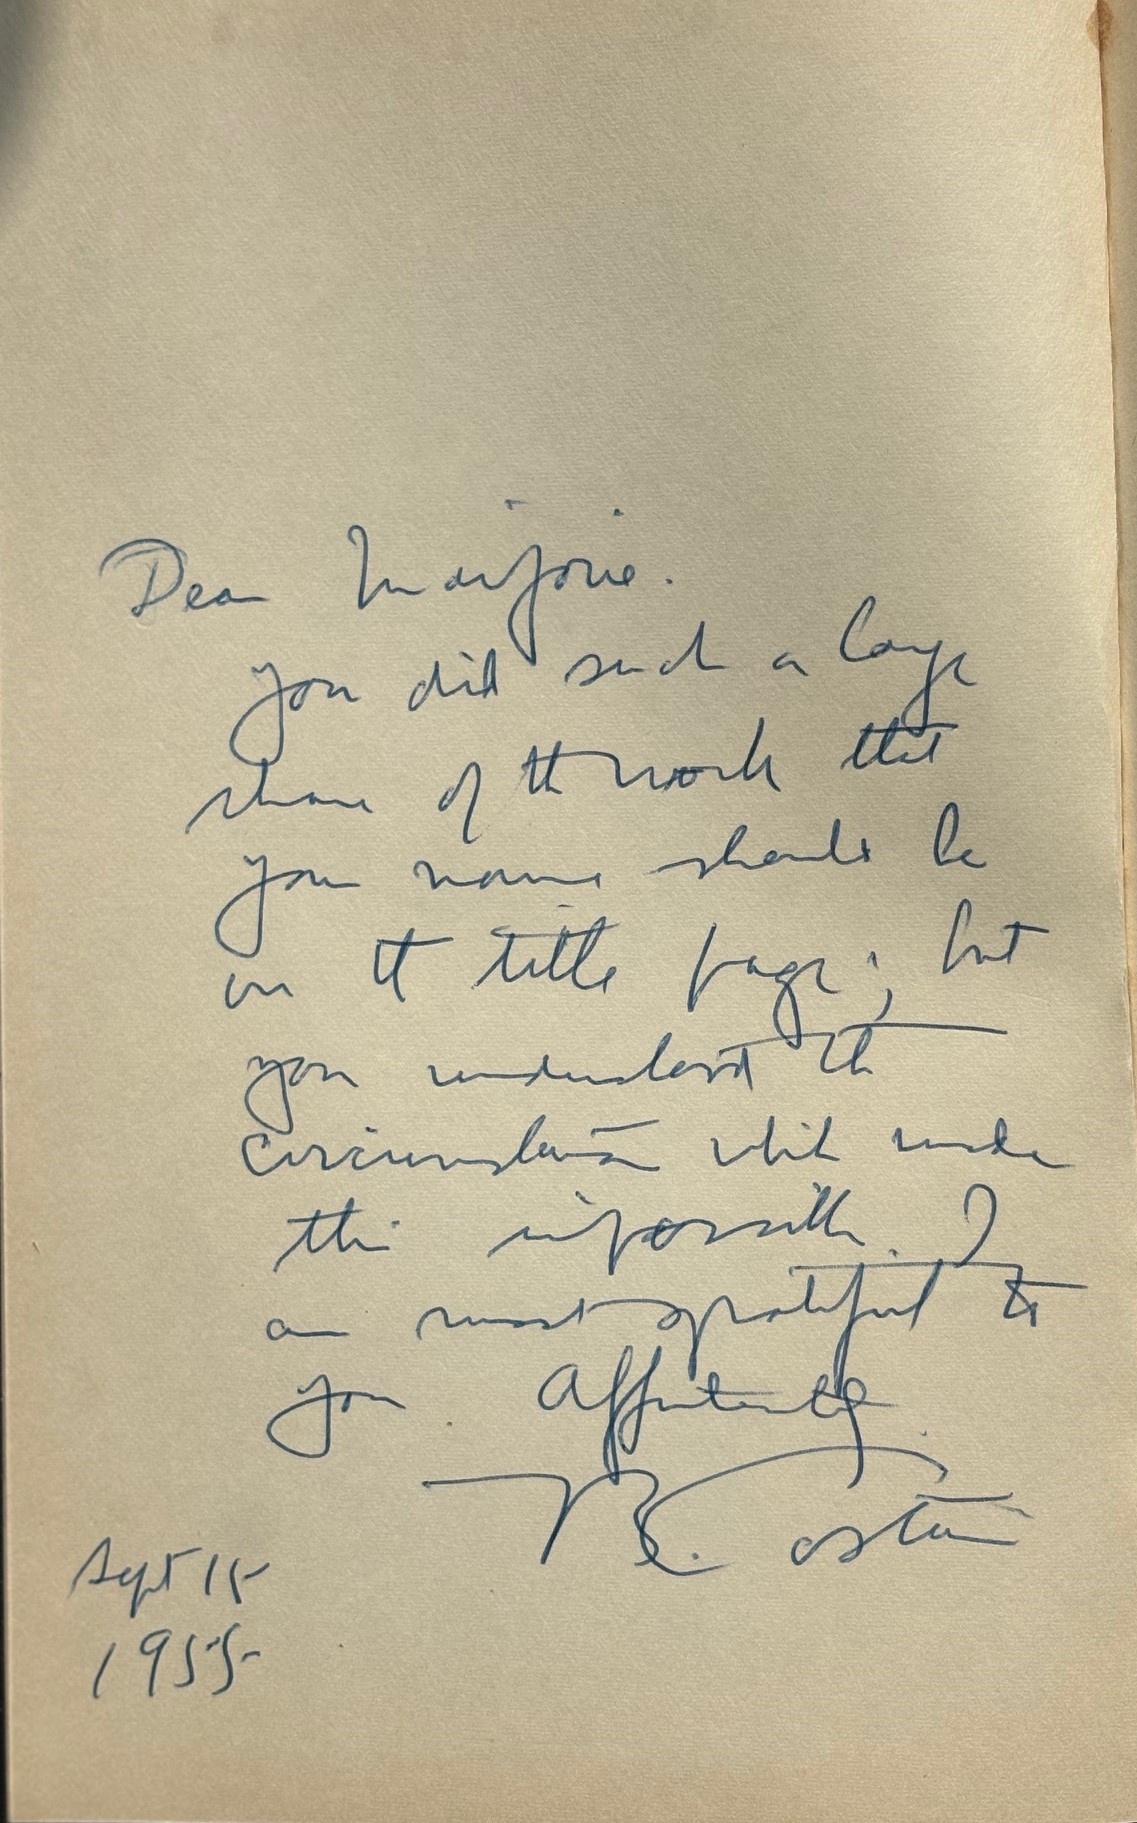 Dear Marjorie.
you did such a large
share of the work that
your name should be
on the title page; but
you understand the
circumstances which made
this impossible. I
am most grateful to
you. Affectionately
Costain
Sept 15
1955